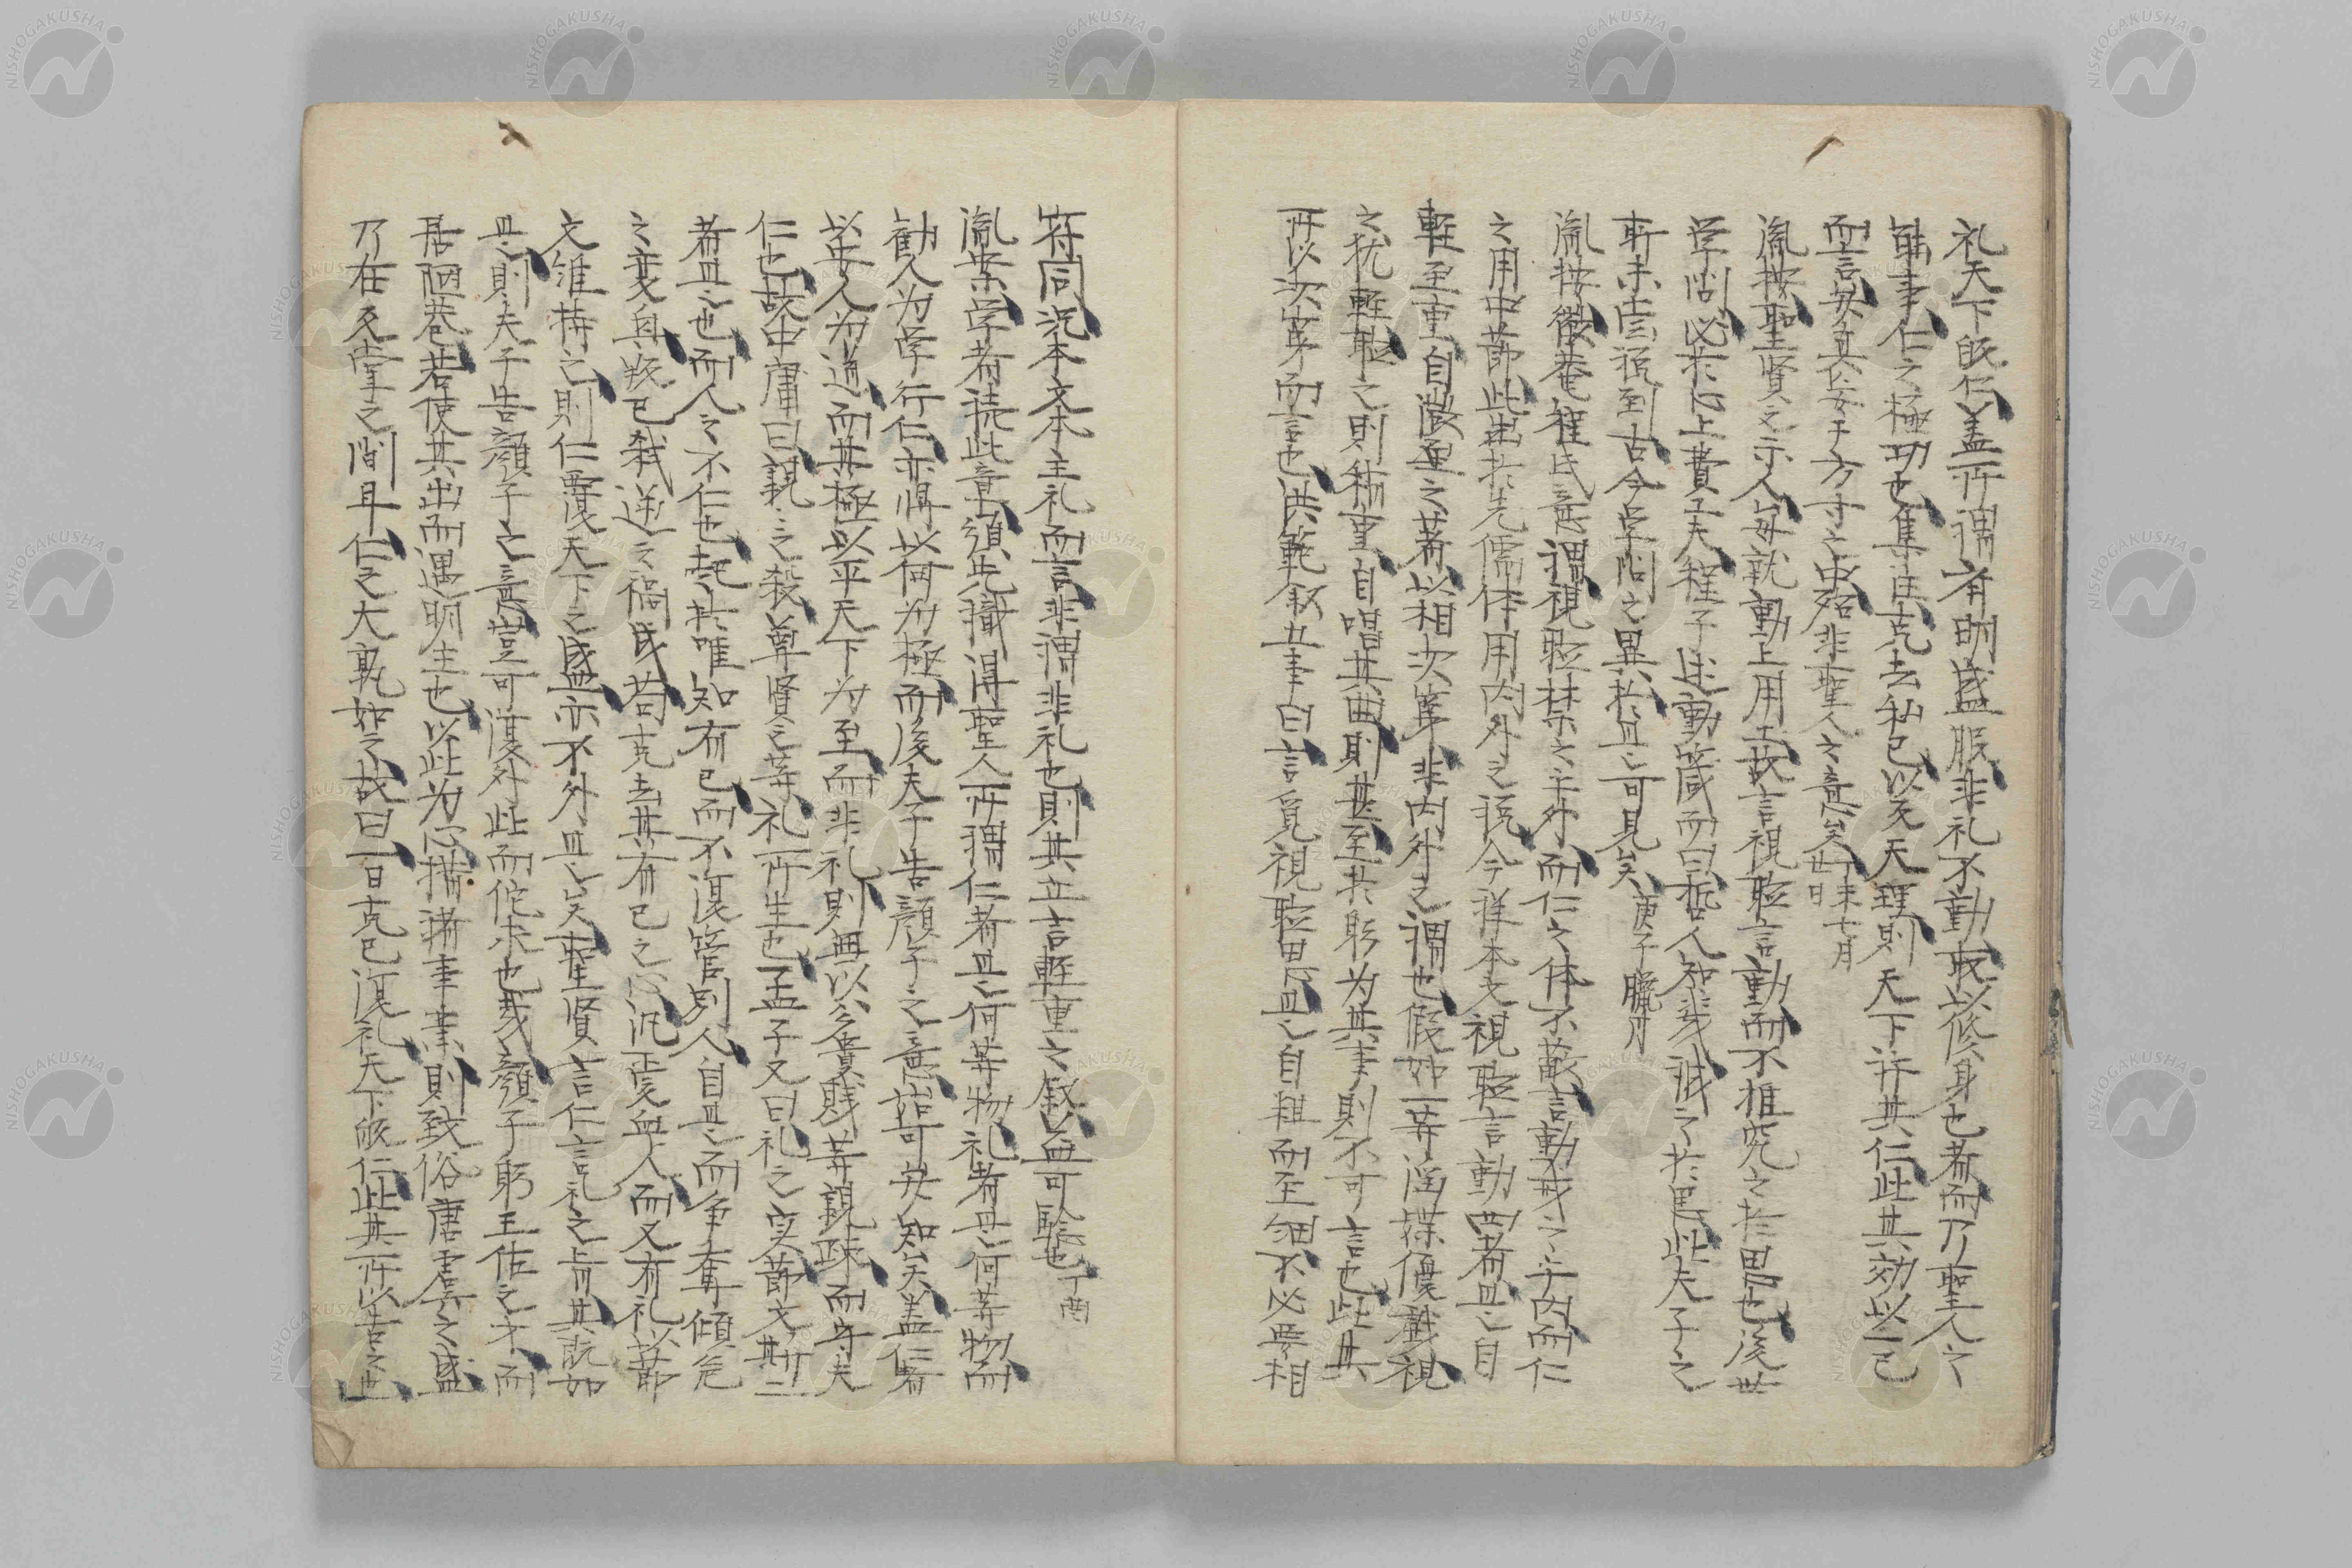 礼天下皈仁盖所謂斉明盛服非礼不動所以修身也者而乃聖人之
能事仁之極功也集注克去私已以天天理則天下許其仁此其効以一己
而言安其在方寸之中殆非聖人之意矣丁未七月廿日
胤按聖賢之示人毎就動上用工故言視聴言動而不推究之於思也後世
学問必於心上費工夫程子述動箴而曰哲人知幾誠之於思此夫子之
所未言説到古今学問之異於是可見矣庚子臘月
胤按徽菴程氏意謂視聴禁之于外而仁之体不蔽言動戒之于内而仁
之用中節此出於先儒体用内外之説今祥本文視聴言動四者是自
軽至重自微至之著以相次第非内外之謂也假如一等淫媟優戯視
之犹軽聴之則稍重自唱其曲則甚至於躬为其事則不可言也此其
所以次第而言也洪範叙五事曰言貌視聴思是自粗而至細不必要相
符同況本文本主礼而言非謂非礼也則其立言軽重之叙益可験也丁酉
胤案学者読此章須先識得聖人所謂仁者是何等物礼者是何等物而
勧人为学行仁亦将以何为極而後夫子告顔子之意皆可安知矣盖仁者
以安人为通而其極以平天下为至而非礼則無以分貴賎等親疎而守夫
仁也故中庸曰親之之殺尊賢之等礼所生也孟子又曰礼之実節文斯二
者是也而人之不仁也起於唯知有已而不復管別人自是而争奪傾危
之変臭叛已弑逆之禍民苟克去其有已之心汎愛無人而又有礼以節
文維持之則仁覆天下之盛亦不外是矣聖賢言仁言礼之旨其既如
是則夫子告顔子之意豈可復外此而佗求也哉顔子躬王佐之才而
居陋巷若使其出而遇明主也以此为心措諸事業則致俗唐虞之盛
乃在反掌之間耳仁之大孰如之故曰一日克已復礼天下皈仁此其所以告之也